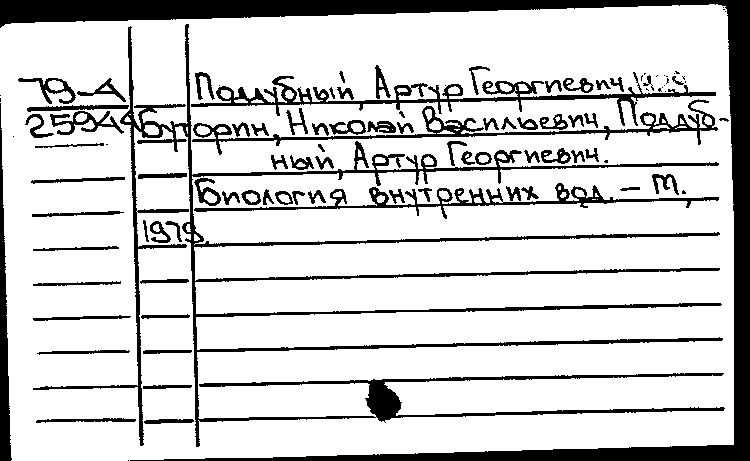 79-А Поддубный, Артур Георгиевич, 1929
25944 Буторин, Николай Васильевич, Поддуб-
ный, Артур Георгиевич.
Биология внутренних вод. – М.,
1979.